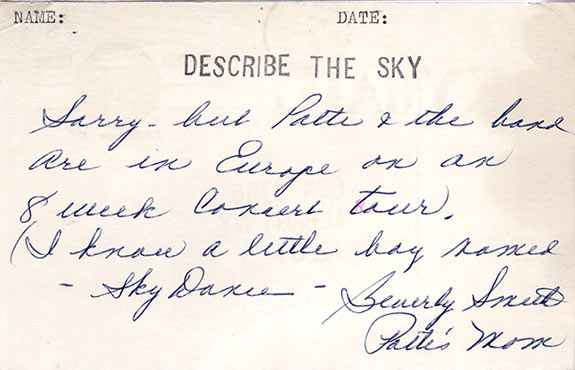 NAME: DATE:
DESCRIBE THE SKY
Sorry - but Patti & the band
are in Europe on an
8 week Concert tour.
(I know a little boy named
- Sky Dance - Beverly Smith
Patti's Mom